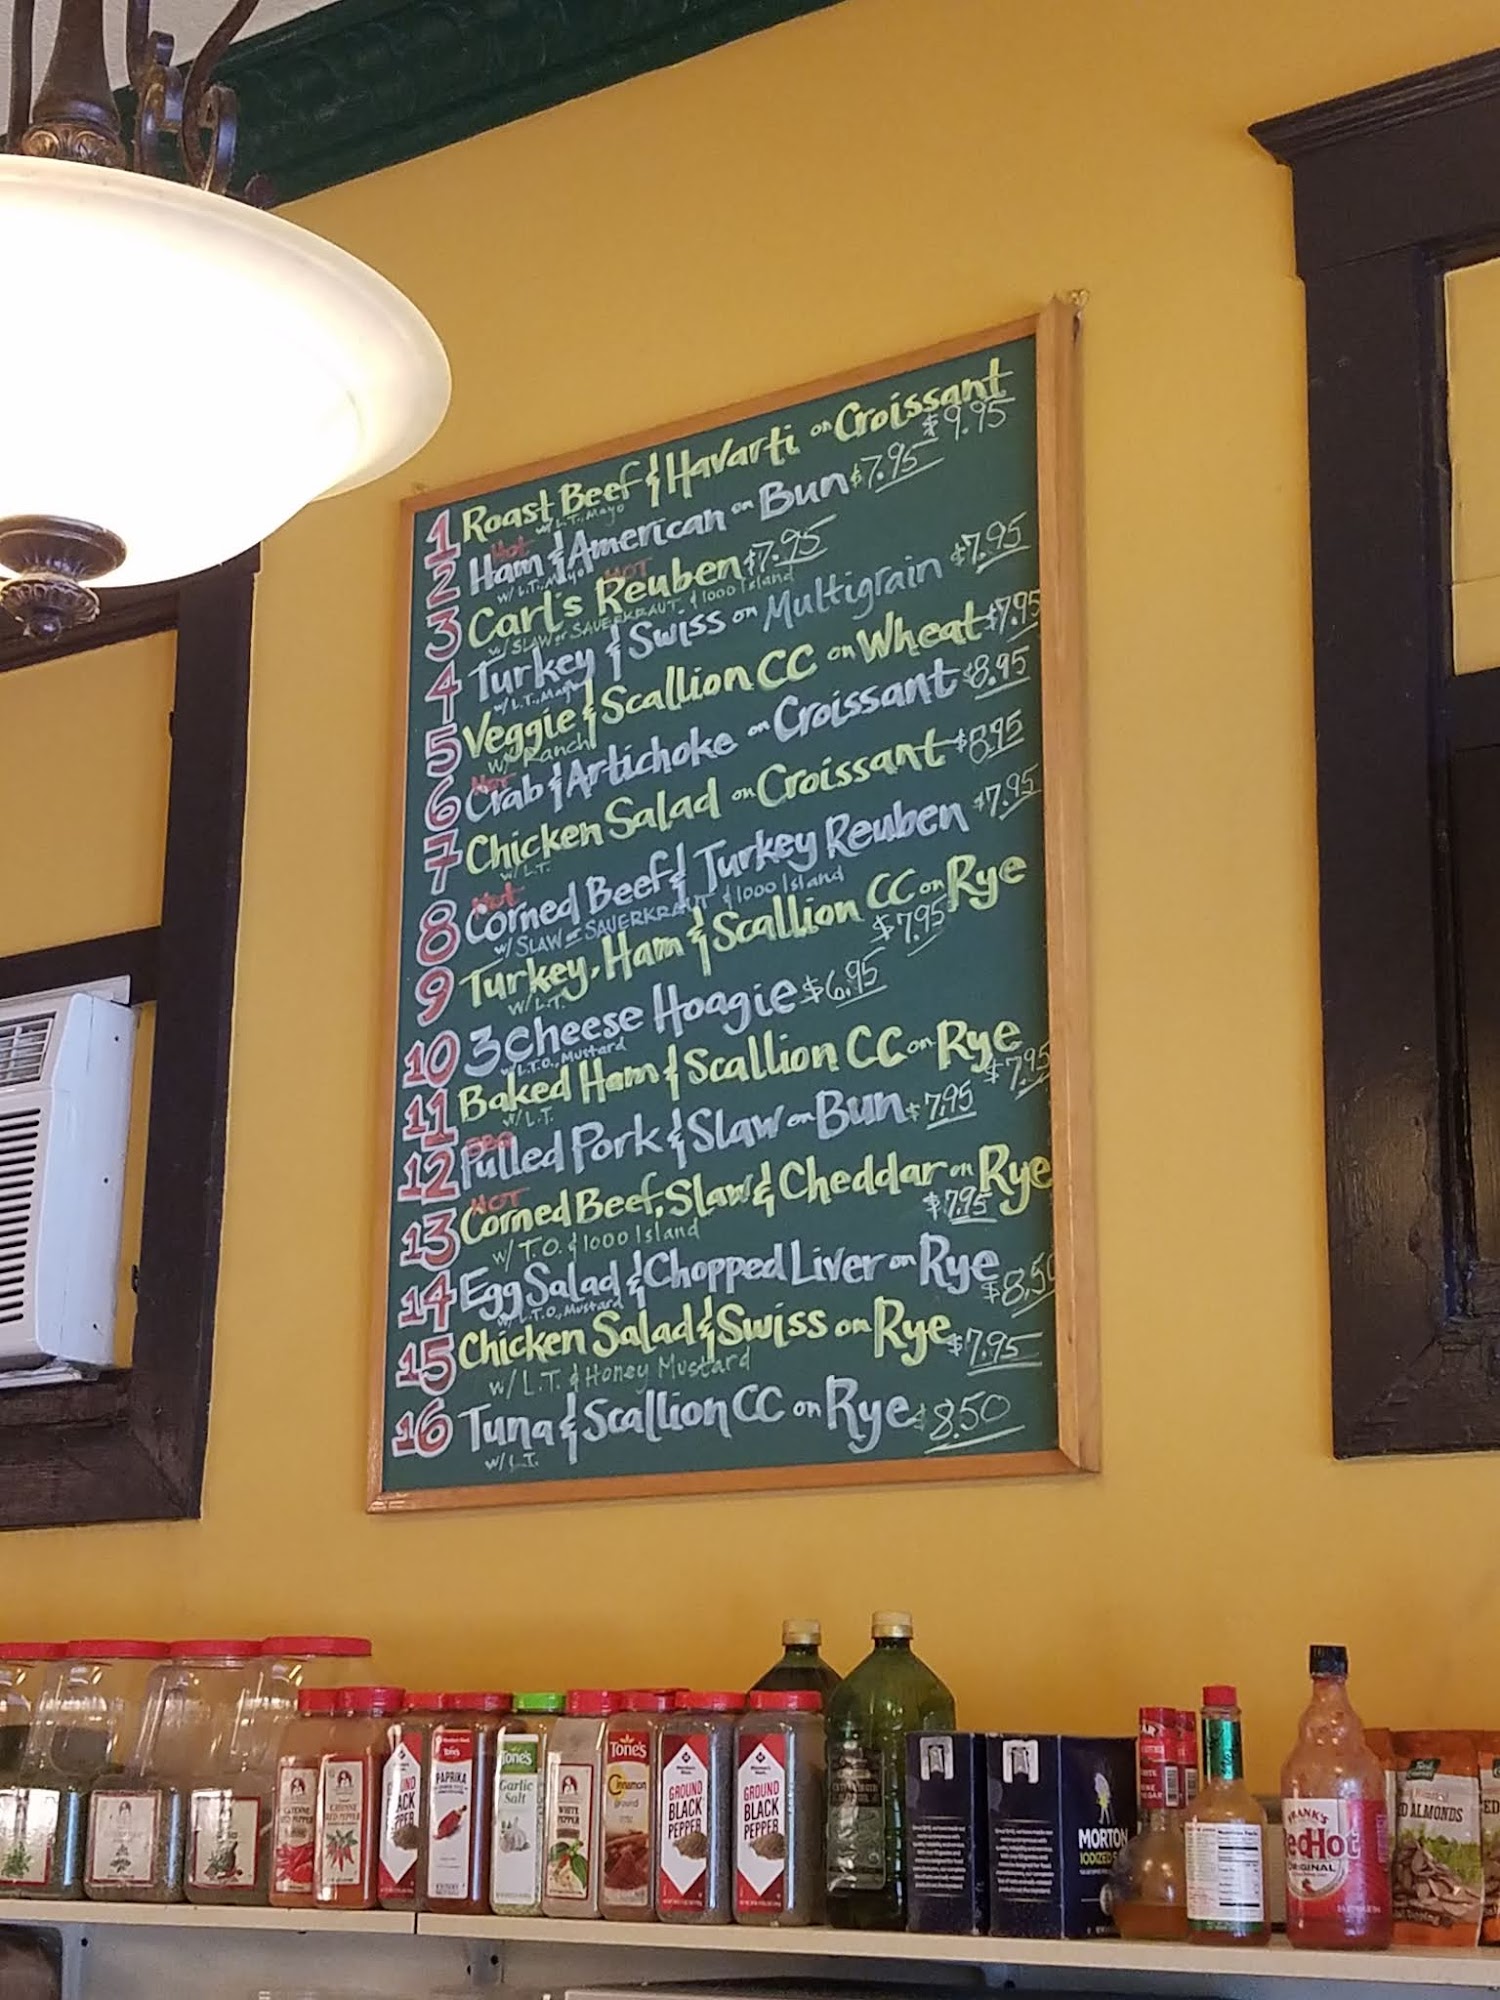 1 Roast Beef & Havarti on Croissant $9.95
w/ L.T., Mayo
Hot
2 Ham & American on Bun $7.95
w/ L.T., Mayo
HOT
3 Carl's Reuben $7.95
w/ SLAW or SAUERKRAUT & 1000 Island
4 Turkey & Swiss on Multigrain $7.95
w/ L.T., Mayo
5 Veggie & Scallion CC on Wheat $7.95
w/ Ranch
Hot
6 Crab & Artichoke on Croissant $8.95
7 Chicken Salad on Croissant $8.95
w/ L.T.
Hot
8 Corned Beef & Turkey Reuben $7.95
w/ SLAW or SAUERKRAUT & 1000 Island
9 Turkey, Ham & Scallion CC on Rye $7.95
w/ L.T.
10 3 Cheese Hoagie $6.95
w/ L.T.O., Mustard
11 Baked Ham & Scallion CC on Rye $7.95
w/ L.T.
BBQ
12 Pulled Pork & Slaw on Bun $7.95
HOT
13 Corned Beef, Slaw & Cheddar on Rye $7.95
w/ T.O. & 1000 Island
14 Egg Salad & Chopped Liver on Rye $8.50
w/ L.T.O., Mustard
15 Chicken Salad & Swiss on Rye $7.95
w/ L.T. & Honey Mustard
16 Tuna & Scallion CC on Rye $8.50
w/ L.T.
CAYENNE RED PEPPER
GROUND BLACK PEPPER
Tone's
PAPRIKA
Tone's
Garlic Salt
WHITE PEPPER
Tone's
Cinnamon
ground
GROUND BLACK PEPPER
GROUND BLACK PEPPER
MORTON
IODIZED
FRANK'S
RedHot
ORIGINAL
ALMONDS